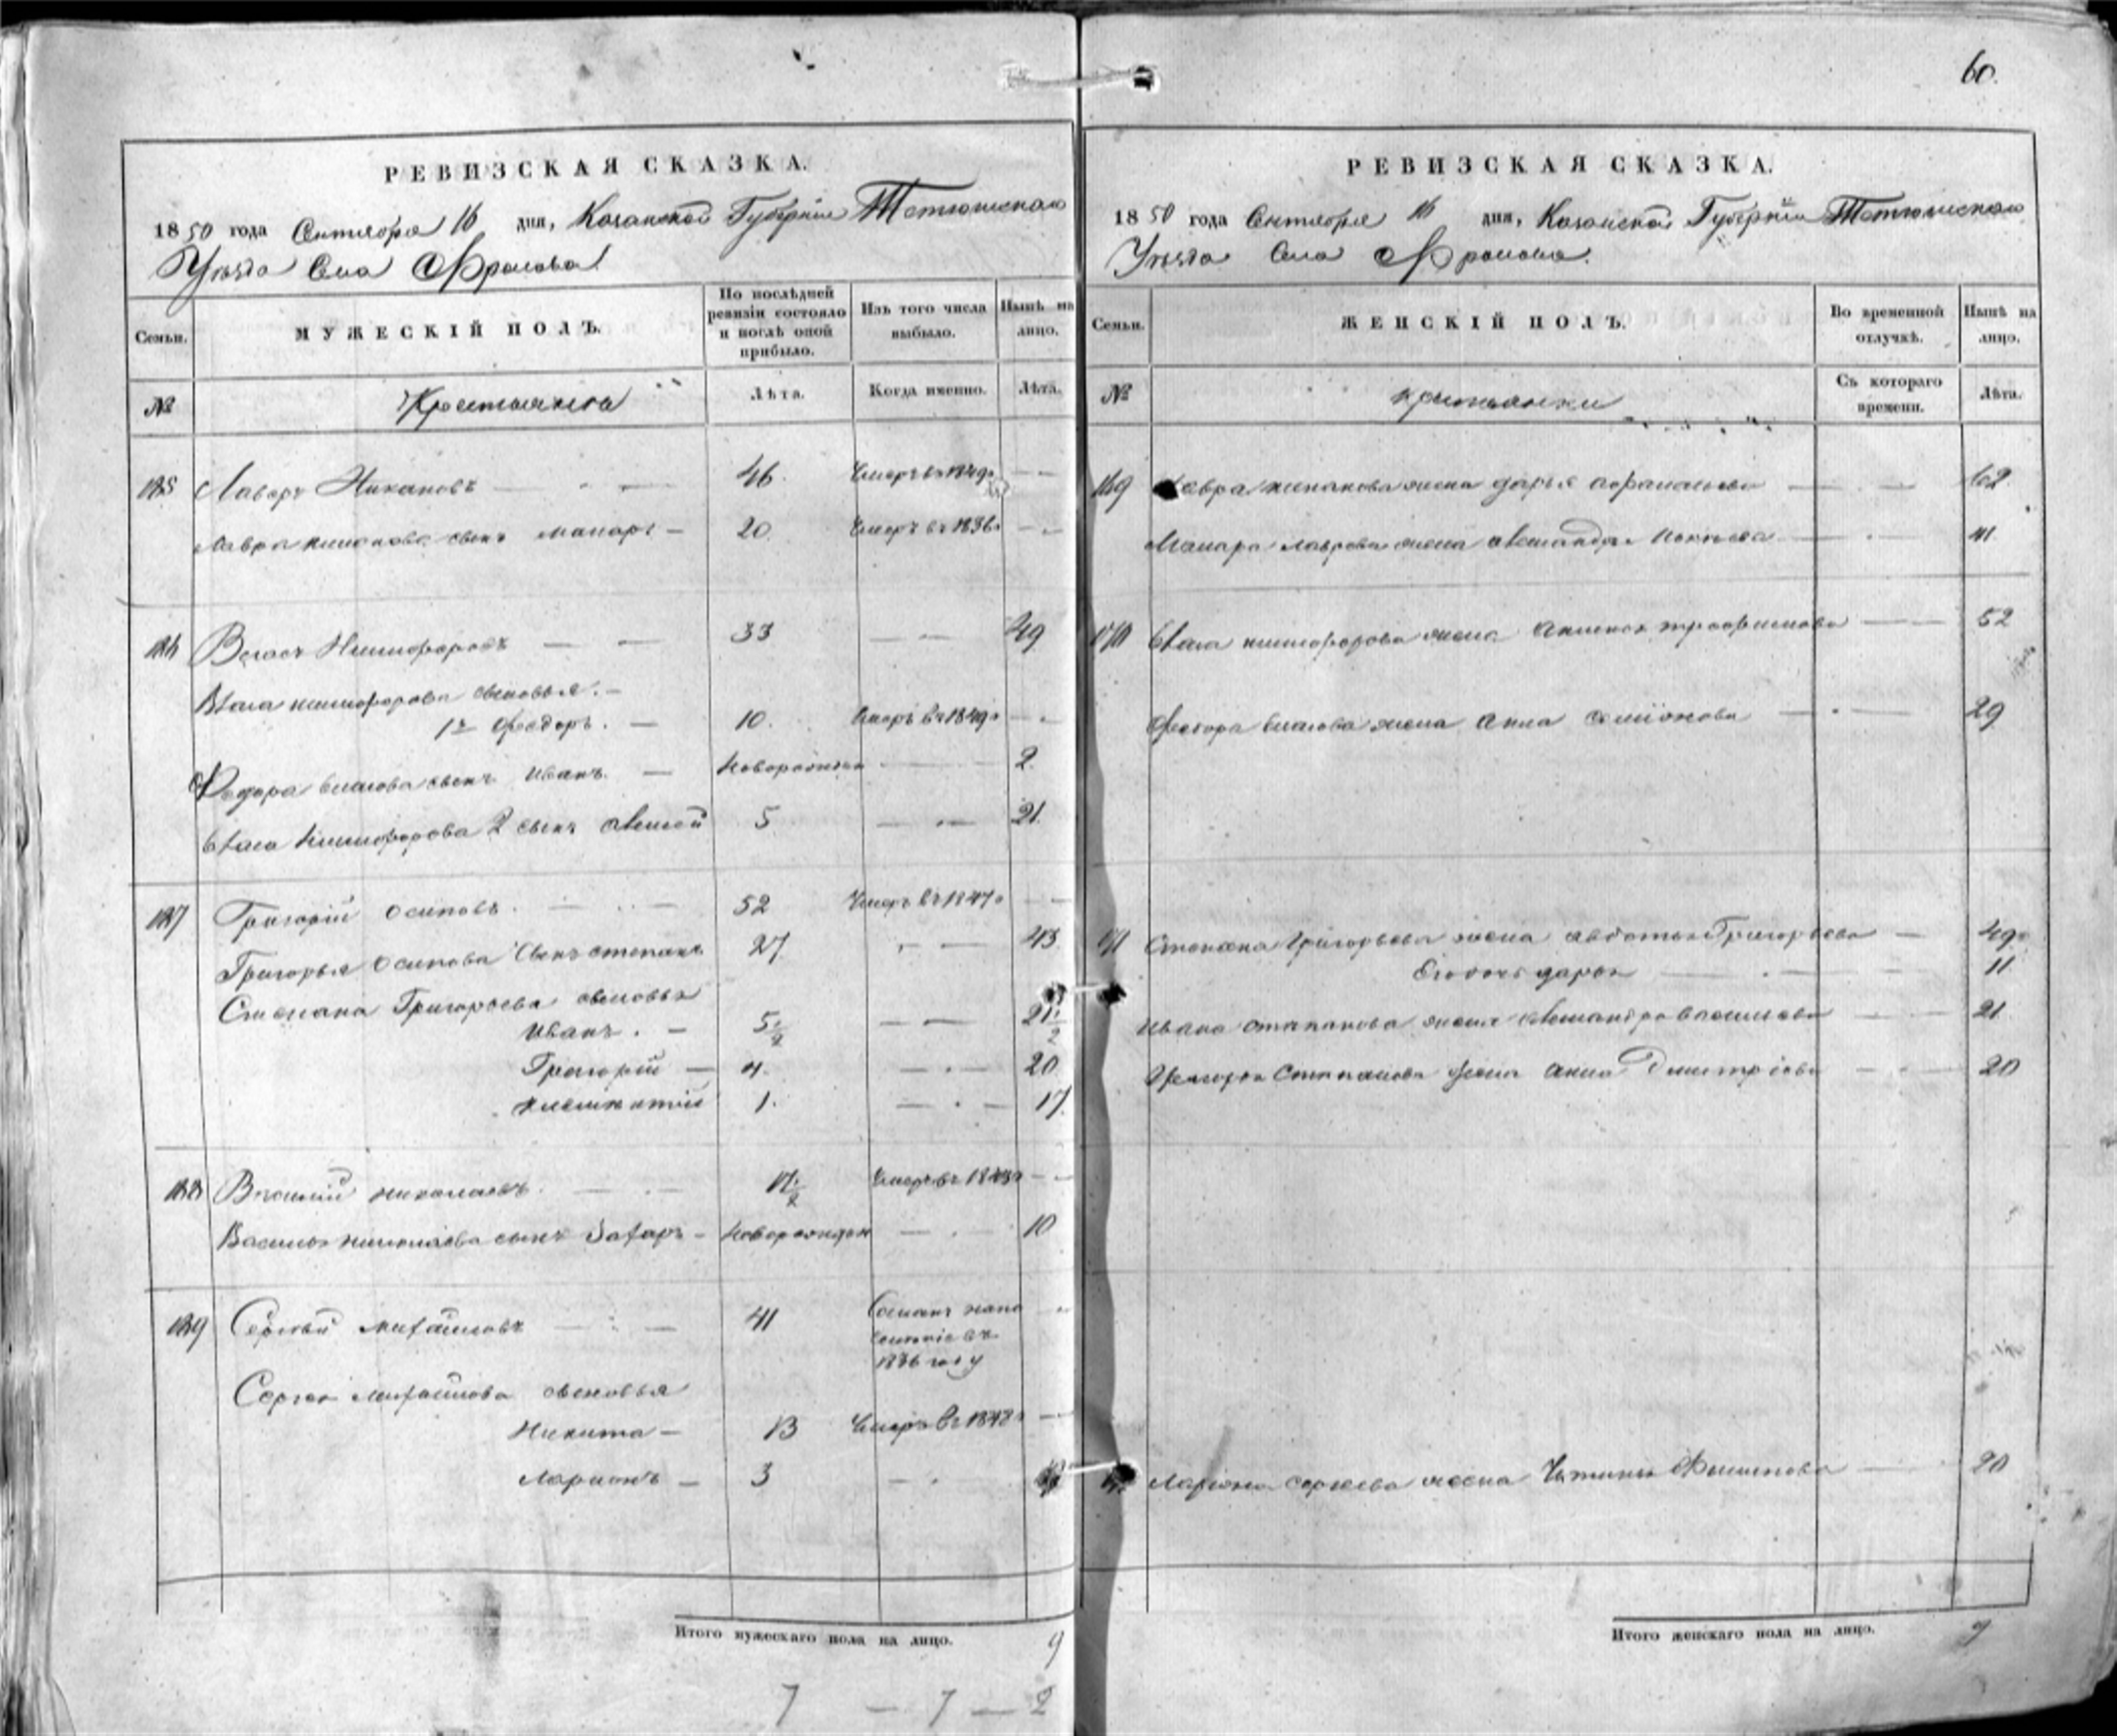 60.
РЕВИЗСКАЯ СКАЗКА.
1850 года Сентября 16 дня, Казанской Губернии Тетюшскаго
Уѣзда Села Фролова
Семьи. МУЖЕСКІЙ ПОЛЪ. По послѣдней ревизіи состояло и послѣ оной прибыло. Изъ того числа выбыло. Нынѣ на лицо.
№ Крестьянъ Лѣта. Когда именно. Лѣта.
Лавръ 46. Умеръ въ 1849
Лавра сынъ Макаръ — 20. Умеръ въ 1836
Власъ Никифоровъ — — 33 — — 49
Власа Никифорова сыновья. —
1й Феодоръ. — 10. Умеръ въ 1849
Федора Власова сынъ Иванъ. — новорожден — 2.
Власа Никифорова 2 сынъ Алексей 5 — — 21.
127 Григорій Осиповъ. — — 52 Умеръ въ 1847
Григорья Осипова сынъ Степанъ 27 — 43
Степана Григорьева сыновья
Иванъ. — 5½ — — 21½
Григорій — 4. — — 20
1. — — 17.
128 Василій Николаевъ. — — Умеръ въ
Василья Николаева сынъ Захаръ — новорожден — 10
129 Сергѣй Михайловъ — — 41 Сосланъ на поселеніе въ 1836 году
Сергея Михайлова сыновья
Никита — 13 Умеръ въ 1848
Ларионъ — 3 —
Итого мужескаго пола на лицо. 9
7 — 7 — 2
РЕВИЗСКАЯ СКАЗКА.
1850 года Сентября 16 дня, Казанской Губерніи Тетюшскаго
Уѣзда Села Фролова.
Семьи. ЖЕНСКІЙ ПОЛЪ. Во временной отлучкѣ. Нынѣ на лицо.
№ крестьянки Съ котораго времени. Лѣта.
169 Лавра жена Дарья — 62
Макара Лаврова жена Александра — 41
170 Власа Никифорова жена Аксинья Трофимова — 52
Федора Власова жена Анна Семионова — 29
171 Степана Григорьева жена Авдотья Григорьева — 49
Его дочь Дарья — 11
Ивана Степанова жена Александра Васильева — 21
Григорья Степанова жена Анна Дмитріева — 20
Ларіона Сергеева жена Устинья Филипова — 20
Итого женскаго пола на лицо. 9